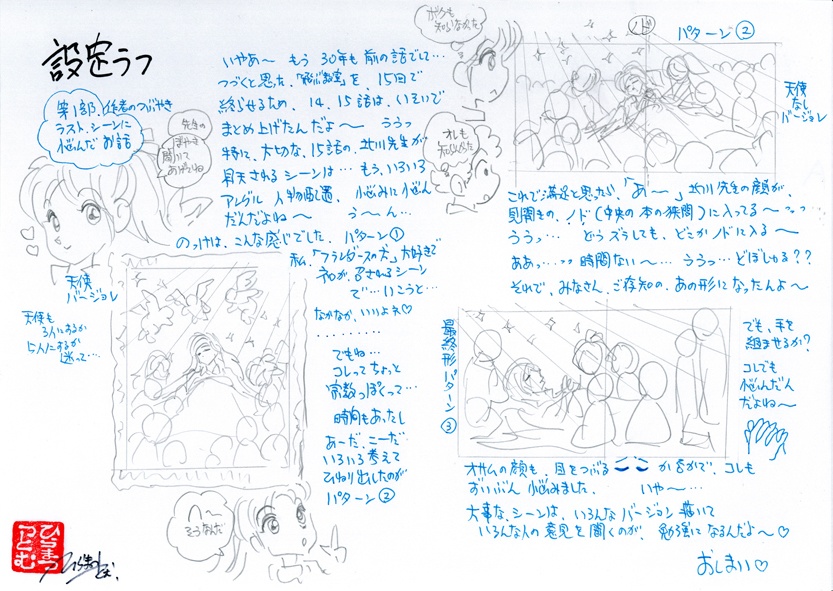 設定ラフ
第1部、作者のつぶやき
ラスト、シーンに
悩んだお話
先生の
ぼやき
聞いて
あげてね
いやあ〜 もう 30年も前の話でして…
つづくと思った、「 を 15回で
終らせるため、14、15話は、いそいで
まとめ上げたんだよ〜 ううっ
特に、大切な、15話の、北川先生が
昇天されるシーンは… もう、いろいろ
アングル 人物配置、悩みに悩ん
だんだよね〜 う〜ん…
のっけは、こんな感じでした。パターン①
天使
バージョン
天使も
3人にするか
5人にするか
迷って…
私、「フランダースの犬」大好きで
ネロが、召されるシーン
で… いこうと…
なかなか、いいよネ♡
・・・・・・・・・
でもね…
コレってちょっと
宗教っぽくって…
時間もあったし
あーだ、こーだ
いろいろ考えて
ひねり出したのが
パターン②
へ〜
そうなんだ
ボクも
知らなかった
オレも
知らんかった
ノド
パターン②
天使
なし
バージョン
これで満足と思ったら、「あ〜」北川先生の顔が、
見開きの、ノド(中央の本の狭間)に入ってる〜ッッ
ううっ… どうズラしても、どこかノドに入る〜
ああっ…ッッ 時間ない〜… ううっ… どぼしよる??
それで、みなさん、ご存知の、あの形になったんよ〜
最終形パターン③
でも、手を
組ませるか?
コレでも
悩んだん
だよね〜
オサムの顔も、目をつぶる かどうかで、コレも
ずいぶん悩みました、 いや〜…
大事な、シーンは、いろんなバージョン描いて
いろんな人の意見を聞くのが、勉強になるんだよ〜♡
おしまい♡
ひらまつ
つとむ